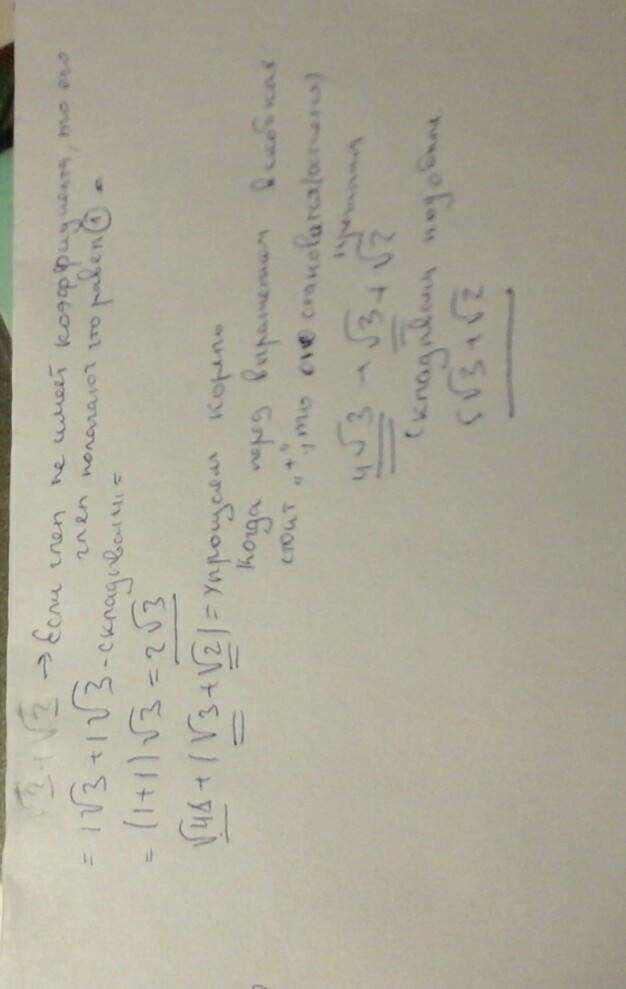 √3 + √3 → Если член не имеет коэффициента, то его
член полагают что равен 1 =
= 1√3 + 1√3 - складываем =
= (1+1)√3 = 2√3
√48 + (√3 + √2) = упрощаем корень
Когда перед выражением в скобках
стоит „+", то они становятся
4√3 + √3 + √2
складываем подобные
5√3 + √2